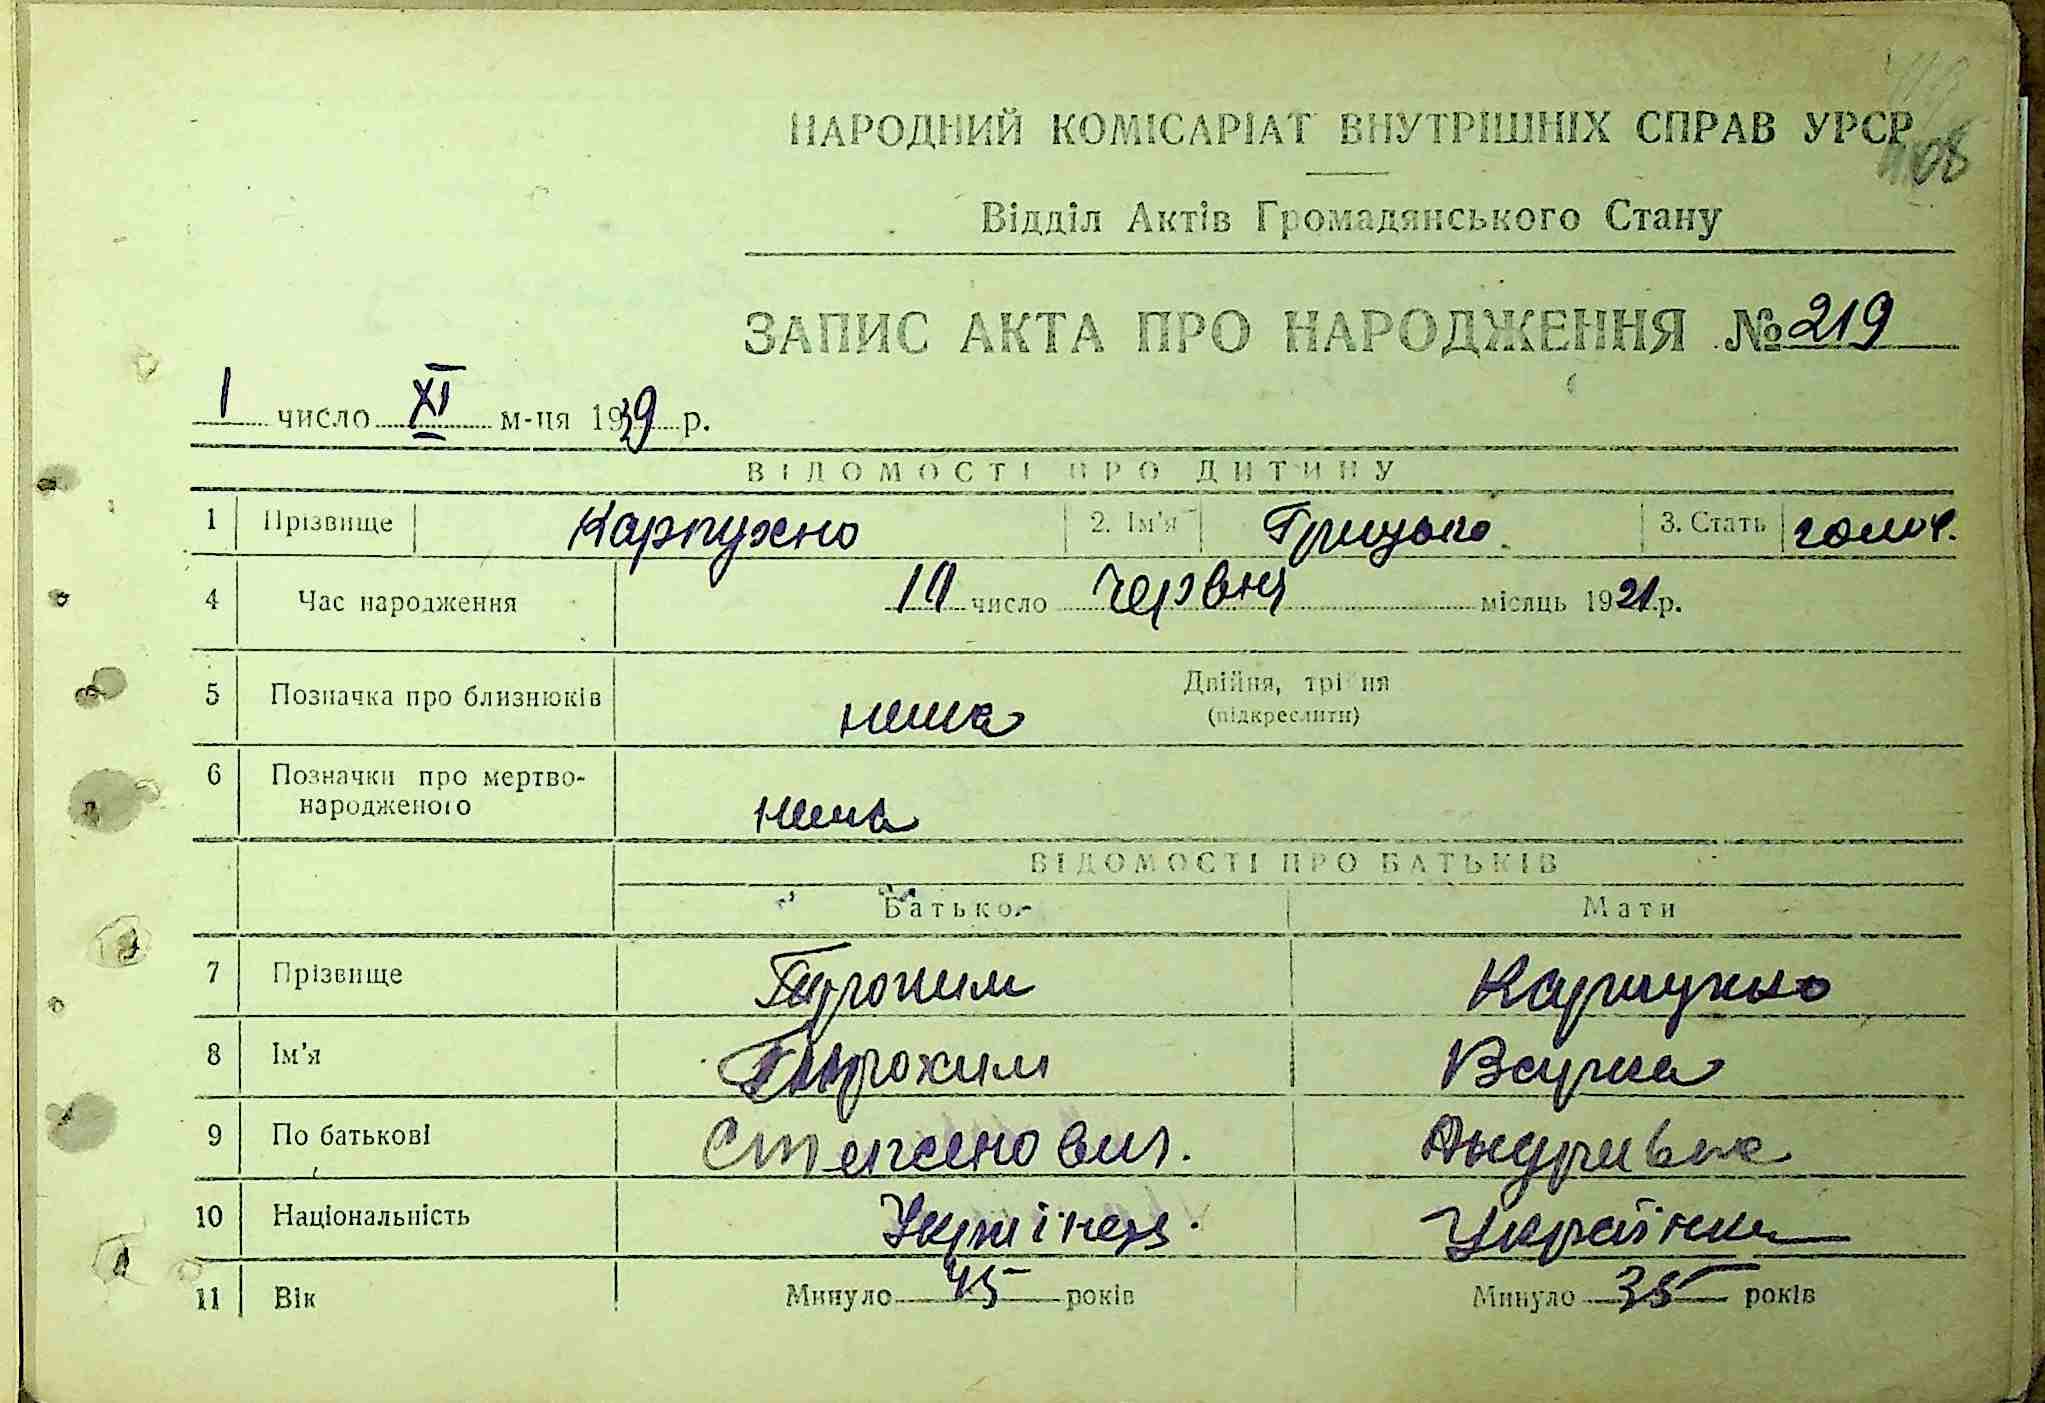 НАРОДНИЙ КОМІСАРІАТ ВНУТРІШНІХ СПРАВ УРСР
Відділ Актів Громадянського Стану
ЗАПИС АКТА ПРО НАРОДЖЕННЯ № 219
1 число XI м-ця 1939 р.
ВІДОМОСТІ ПРО ДИТИНУ
1 Прізвище Карпухно 2. Ім'я Грицько 3. Стать
4 Час народження число червня місяць 1921 р.
5 Позначка про близнюків нема Двійня, трійня
(підкреслити)
6 Позначки про мертво-
народженого нема
ВІДОМОСТІ ПРО БАТЬКІВ
Батько Мати
7 Прізвище Карпухно
8 Ім'я Трохим
9 По батькові Степанович.
10 Національність Українець. Українка
11 Вік Минуло 45 років Минуло 35 років